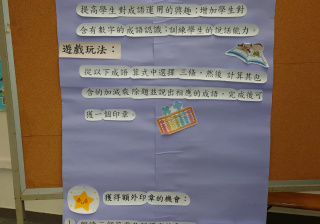 提高學生對成語運用的興趣；增加學生對
含有數字的成語認識；訓練學生的說話能力。
遊戲玩法：
從以下成語算式中選擇三條，然後計算其包
含的加減乘除題並說出相應的成語，完成後可
獲一個印章。
獲得額外印章的機會：